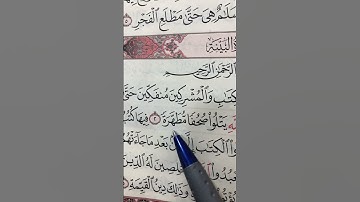 سَلَٰمٌ هِيَ حَتَّىٰ مَطْلَعِ ٱلْفَجْرِ ٥
ٱلْبَيِّنَةِ
ٱلرَّحْمَٰنِ ٱلرَّحِيمِ
وَٱلْمُشْرِكِينَ مُنفَكِّينَ حَتَّىٰ
يَتْلُوا۟ صُحُفًا مُّطَهَّرَةً ٢ فِيهَا كُتُبٌ
ٱلْكِتَٰبَ بَعْدِ مَا جَآءَتْهُمُ
مُخْلِصِينَ لَهُ ٱلدِّينَ
وَذَٰلِكَ دِينُ ٱلْقَيِّمَةِ